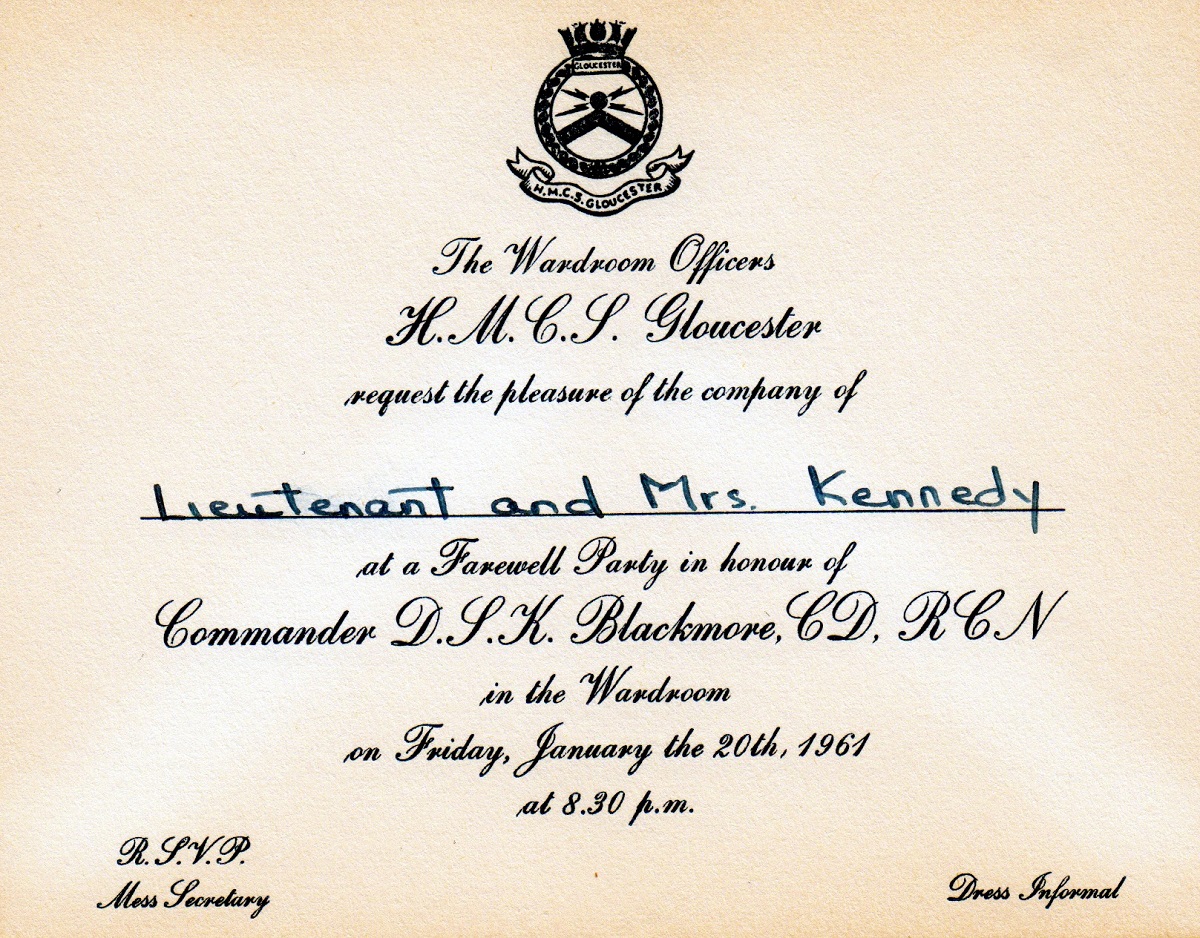 GLOUCESTER
H.M.C.S. GLOUCESTER
The Wardroom Officers
H.M.C.S. Gloucester
request the pleasure of the company of
Lieutenant and Mrs. Kennedy
at a Farewell Party in honour of
Commander D.S.K. Blackmore, CD, RCN
in the Wardroom
on Friday, January the 20th, 1961
at 8.30 p.m.
R.S.V.P.
Mess Secretary
Dress Informal